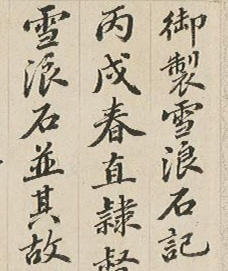 御製雪浪石記
丙戌春直隸督
雪浪石並其故